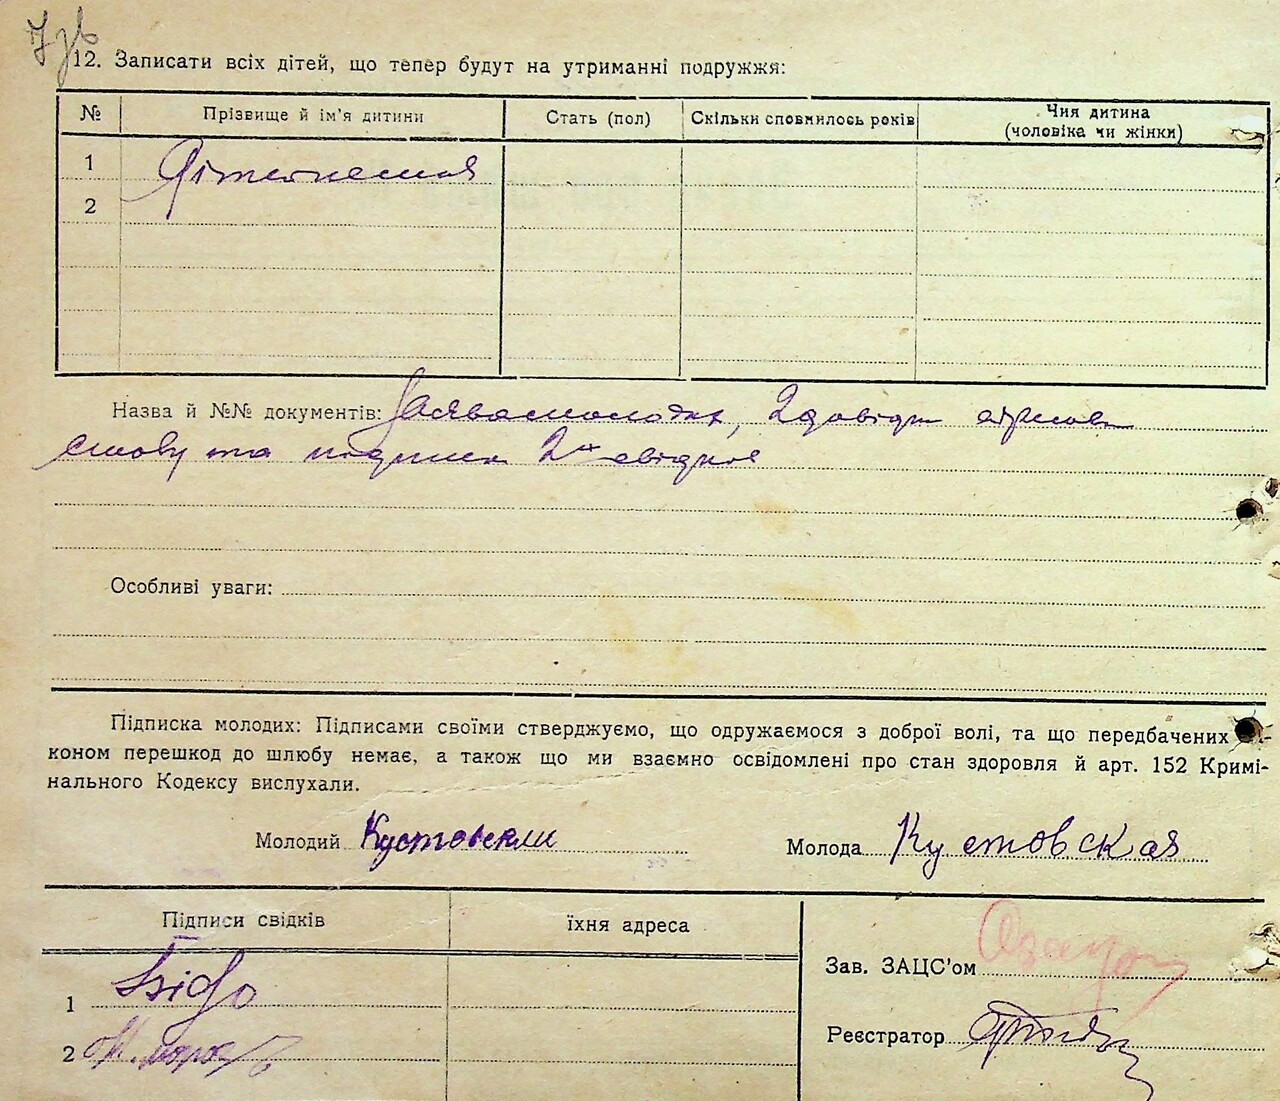 12. Записати всіх дітей, що тепер будут на утриманні подружжя:
№ Прізвище й ім'я дитини Стать (пол) Скільки сповнилось років Чия дитина
(чоловіка чи жінки)
1
2
Назва й №№ документів: 2 довідки
та підписи 2х свідків
Особливі уваги:
Підписка молодих: Підписами своїми стверджуємо, що одружаємося з доброї волі, та що передбачених
коном перешкод до шлюбу немає, а також що ми взаємно освідомлені про стан здоровля й арт. 152 Кримі-
нального Кодексу вислухали.
Молодий Кустовски Молода Кустовская
Підписи свідків їхня адреса
Зав. ЗАЦС'ом
1
Реєстратор
2